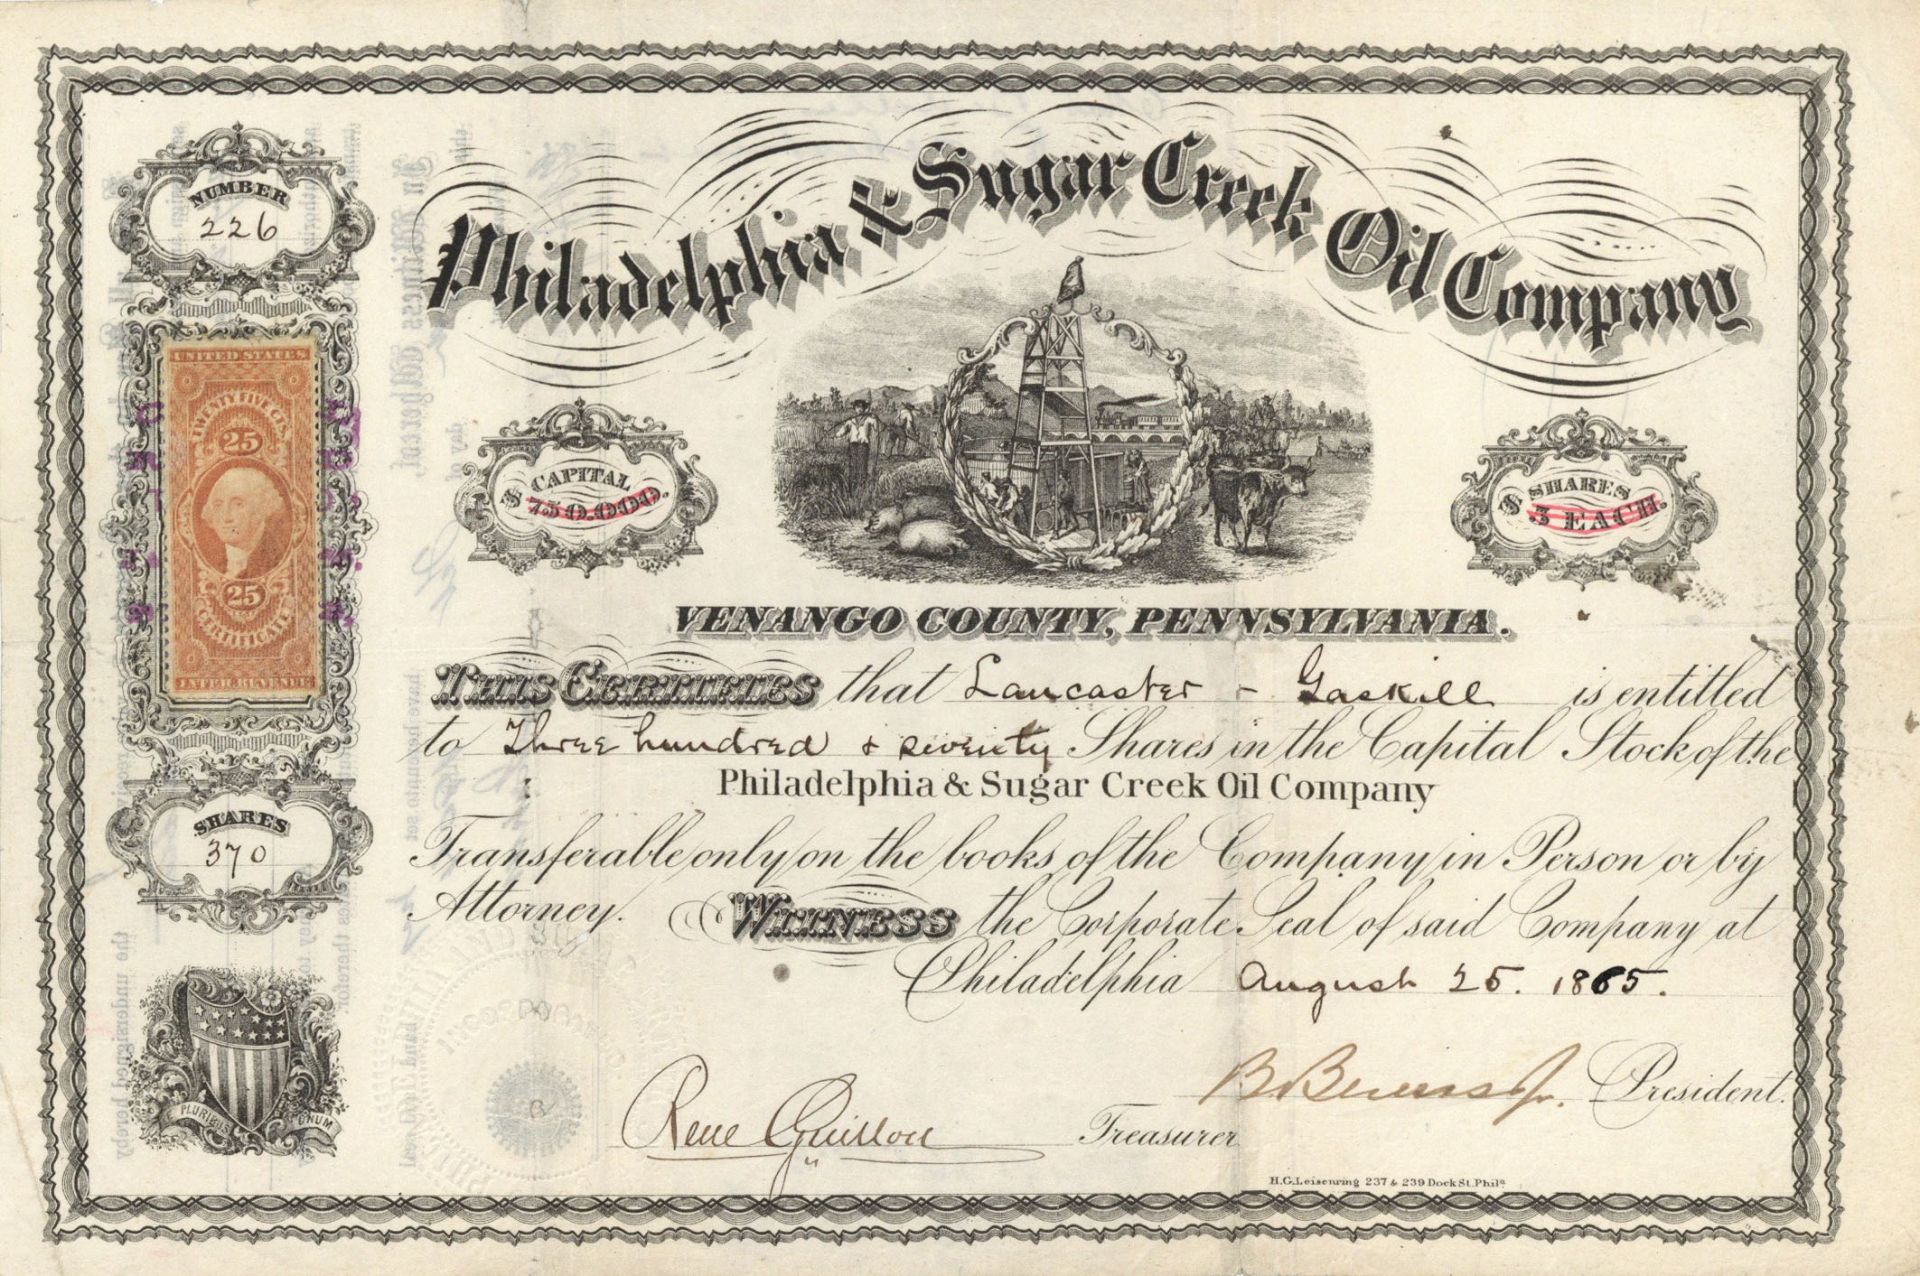 Philadelphia & Sugar Creek Oil Company
NUMBER
226
UNITED STATES
TWENTY FIVE CTS.
25
25
CERTIFICATE
INTER. REVENUE
CAPITAL
$750.000.
SHARES
$3 EACH.
VENANGO COUNTY, PENNSYLVANIA.
THIS CERTIFIES that Lancaster & Gaskill is entitled
to Three hundred & seventy Shares in the Capital Stock of the
Philadelphia & Sugar Creek Oil Company
Transferable only on the books of the Company in Person or by
Attorney. WITNESS the Corporate Seal of said Company at
Philadelphia August 25. 1865.
SHARES
370
E PLURIBUS UNUM
Rene Guillou Treasurer
President.
H.G. Leisenring 237 & 239 Dock St. Phila